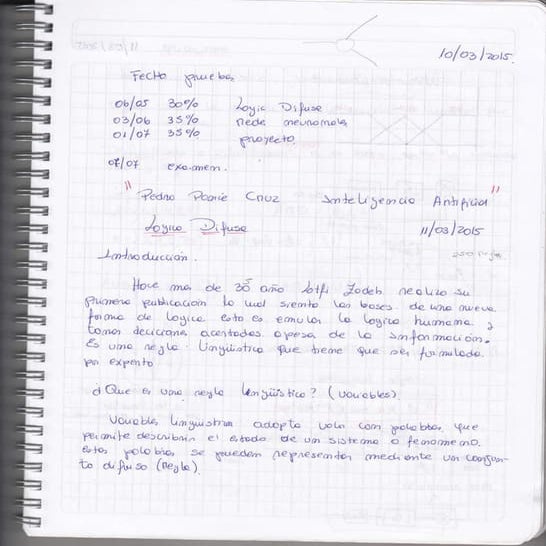 10/03/2015.
Fecha pruebas
06/05 30% Logic Difusa
03/06 35% Rede neuronales
01/07 35% proyecto.
07/07 examen.
" Pedro Ponce Cruz Inteligencia Artificial "
Logica Difusa 11/03/2015
Introducción.
Hace mas de 30 año Lotfi Zadeh realizo su
primera publicación la cual siento las bases de una nueva
forma de logica esta es emular la logica humana y
tomar deciciones acertadas apesa de la información.
Es una regla linguistica que tiene que ser formulada
por experto
¿Que es una regla lingüistica? (variables).
Variables linguistica adopta valor con palabras que
permite describir el estado de un sistema o fenomeno.
Estas palabras se pueden representar mediante un conjun-
to difuso (Regla).